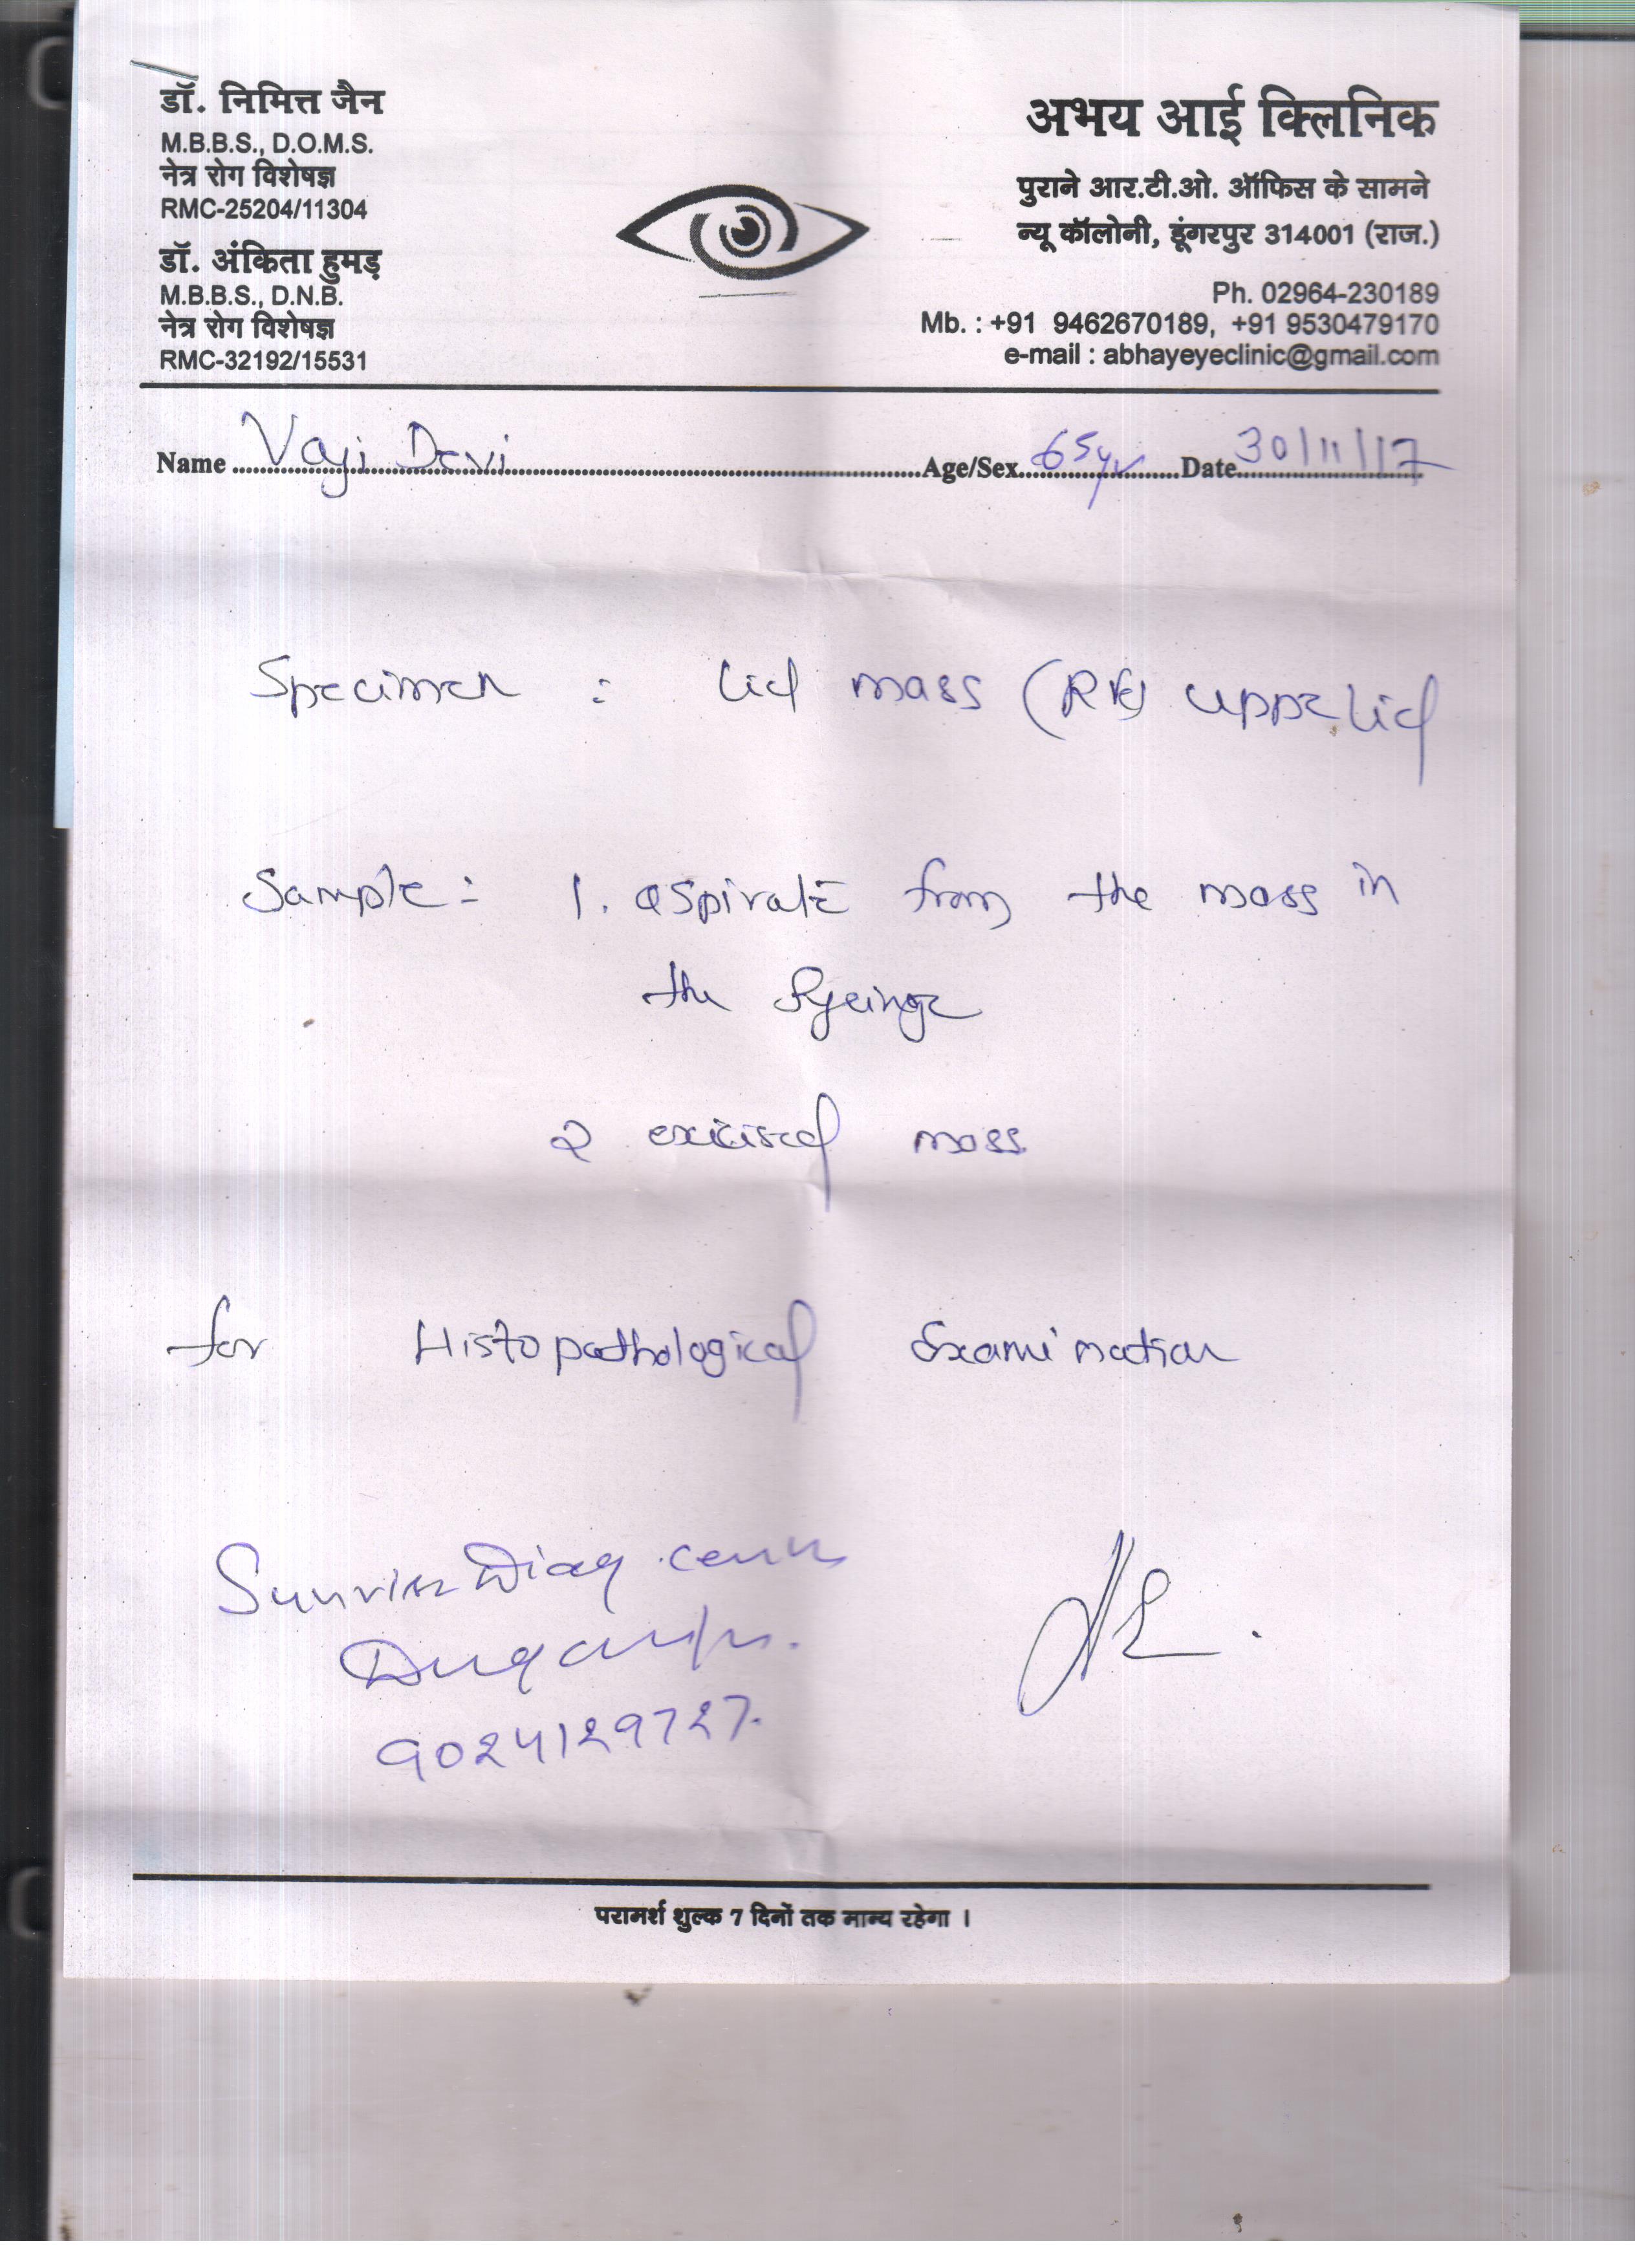 डॉ. निमित्त जैन
M.B.B.S., D.O.M.S.
नेत्र रोग विशेषज्ञ
RMC-25204/11304
डॉ. अंकिता हुमड़
M.B.B.S., D.N.B.
नेत्र रोग विशेषज्ञ
RMC-32192/15531
अभय आई क्लिनिक
पुराने आर.टी.ओ. ऑफिस के सामने
न्यू कॉलोनी, डूंगरपुर 314001 (राज.)
Ph. 02964-230189
Mb. : +91 9462670189, +91 9530479170
e-mail : abhayeyeclinic@gmail.com
Name Vaji Devi Age/Sex 65yr Date 30/11/17
Specimen : Lid mass (RE) upper lid
Sample : 1. aspirate from the mass in
the Syringe
2 excised mass
for Histopathological Examination
Sunrise Diag. Centre
Dungarpur.
9024129727.
परामर्श शुल्क 7 दिनों तक मान्य रहेगा ।